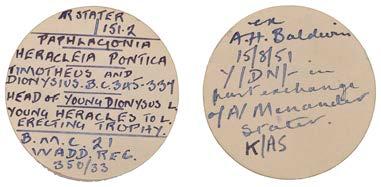 Æ STATER
151·2
PAPHLAGONIA
HERACLEIA PONTICA
TIMOTHEUS AND
DIONYSIUS. B.C. 345-337
HEAD OF YOUNG DIONYSUS L.
YOUNG HERACLES TO L.
ERECTING TROPHY.
B.M.C. 21
WADD. REC.
350/33
ex
A.H. Baldwin
15/8/51
Y/DN/- in
part exchange
of A/ Menander
stater.
K/AS